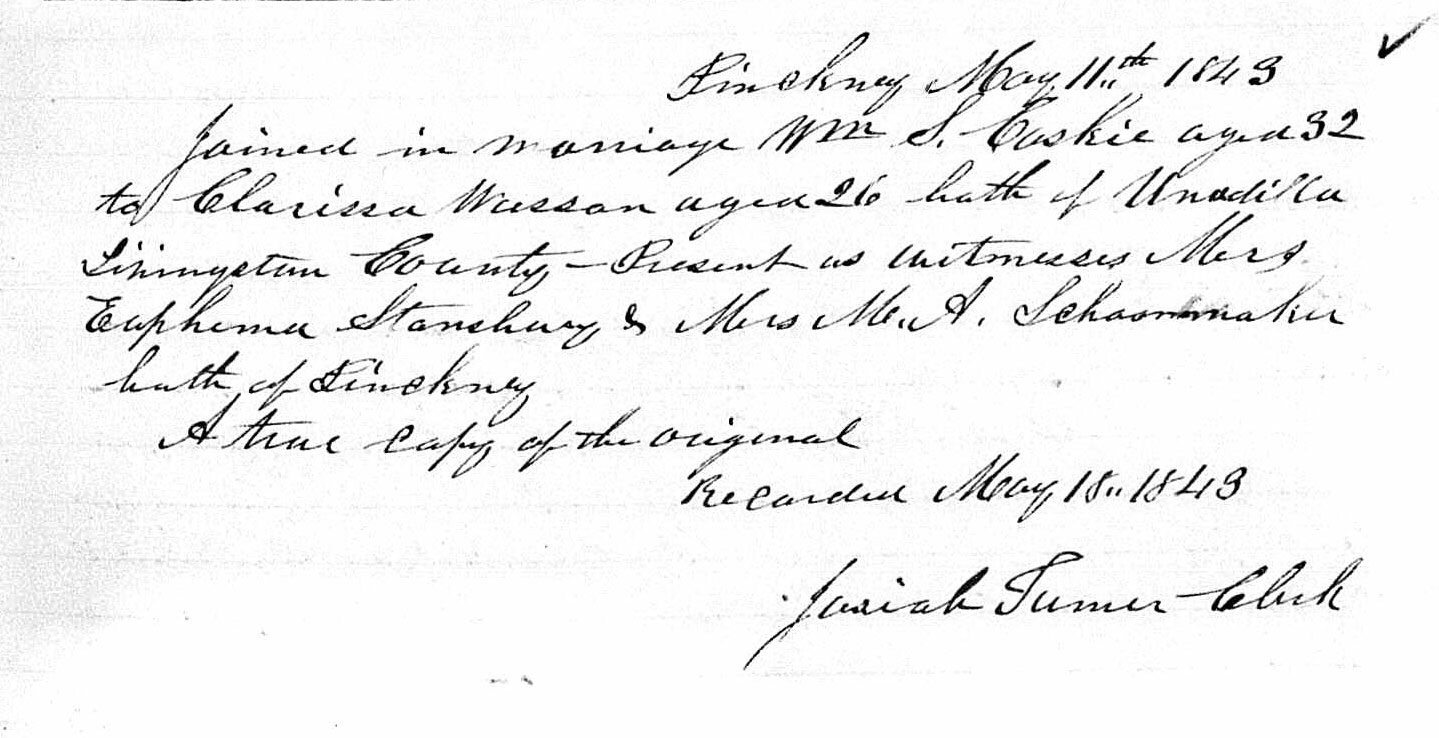 Pinckney May 11th 1843
Joined in marriage Wm S. Caskie aged 32
to Clarissa Wasson aged 26 both of Unadilla
Livingston County – Present as witnesses Mrs.
Euphema Stansbury & Mrs M. A. Schoonmaker
both of Pinckney
A true copy of the original
Recorded May 18.. 1843
Josiah Turner Clerk